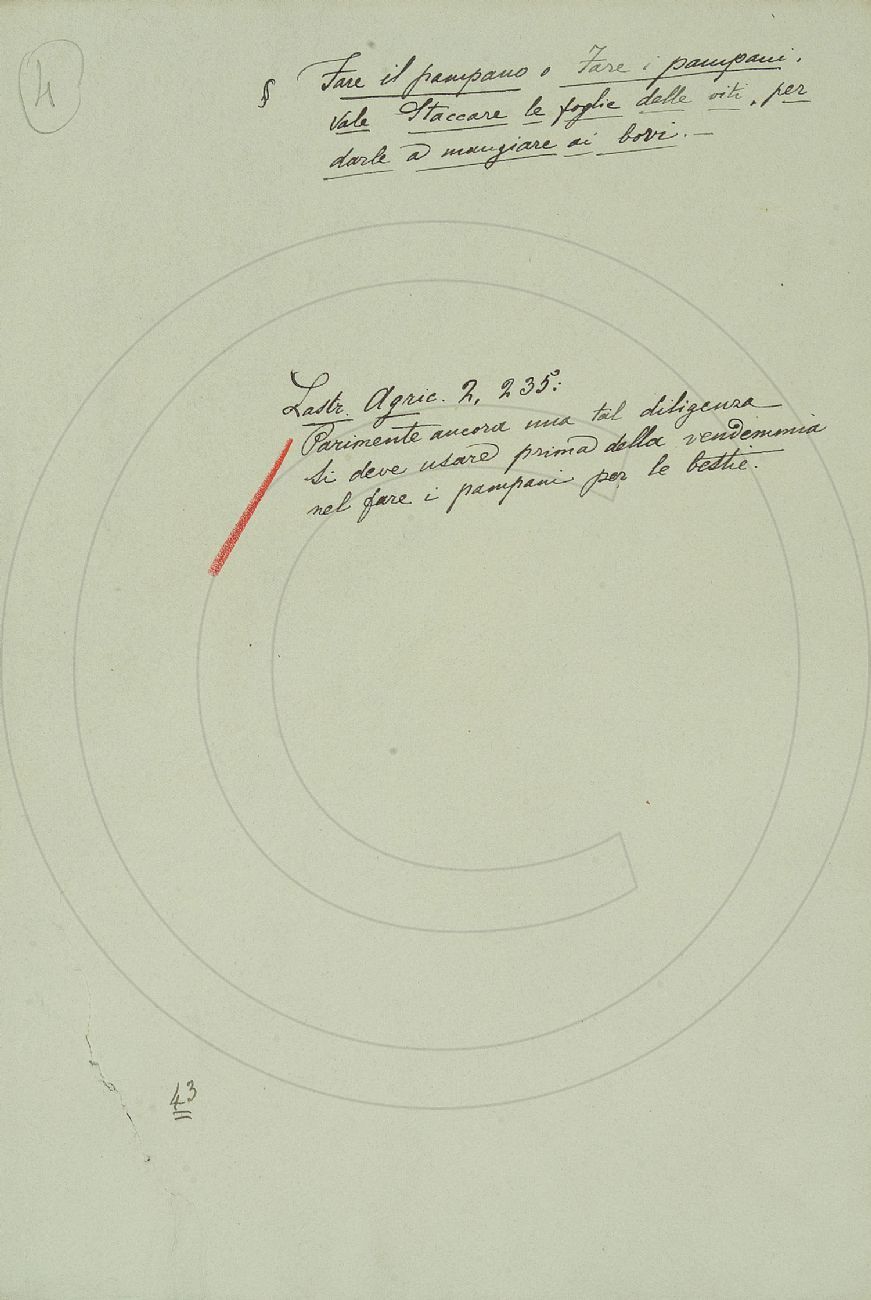 4
§ Fare il pampano o Fare i pampani.
vale Staccare le foglie delle viti, per
darle a mangiare ai bovi. —
Lastr. Agric. 2, 235:
Parimente ancora una tal diligenza
si deve usare prima della vendemmia
nel fare i pampani per le bestie.
43